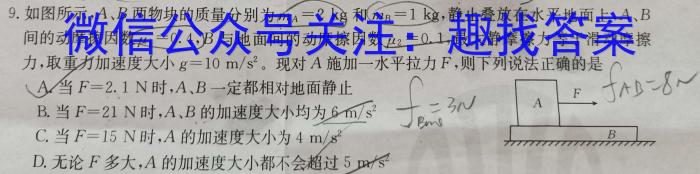 9. 如图所示,A、B两物块的质量分别为mA=2 kg和mB=1 kg,静止叠放在水平地面上,A、B
间的动摩擦因数 0.4,B与地面间的动摩擦因数μ2=0.1, 摩擦
微信公众号关注:趣找答案
力,取重力加速度大小g=10 m/s²。现对A施加一水平拉力F,则下列说法正确的是
A. 当F=2.1 N时,A、B一定都相对地面静止
B. 当F=21 N时,A、B的加速度大小均为6 m/s²
C. 当F=15 N时,A的加速度大小为4 m/s²
D. 无论F多大,A的加速度大小都不会超过5 m/s²
fBms=3N
A F
B
fAB=8N